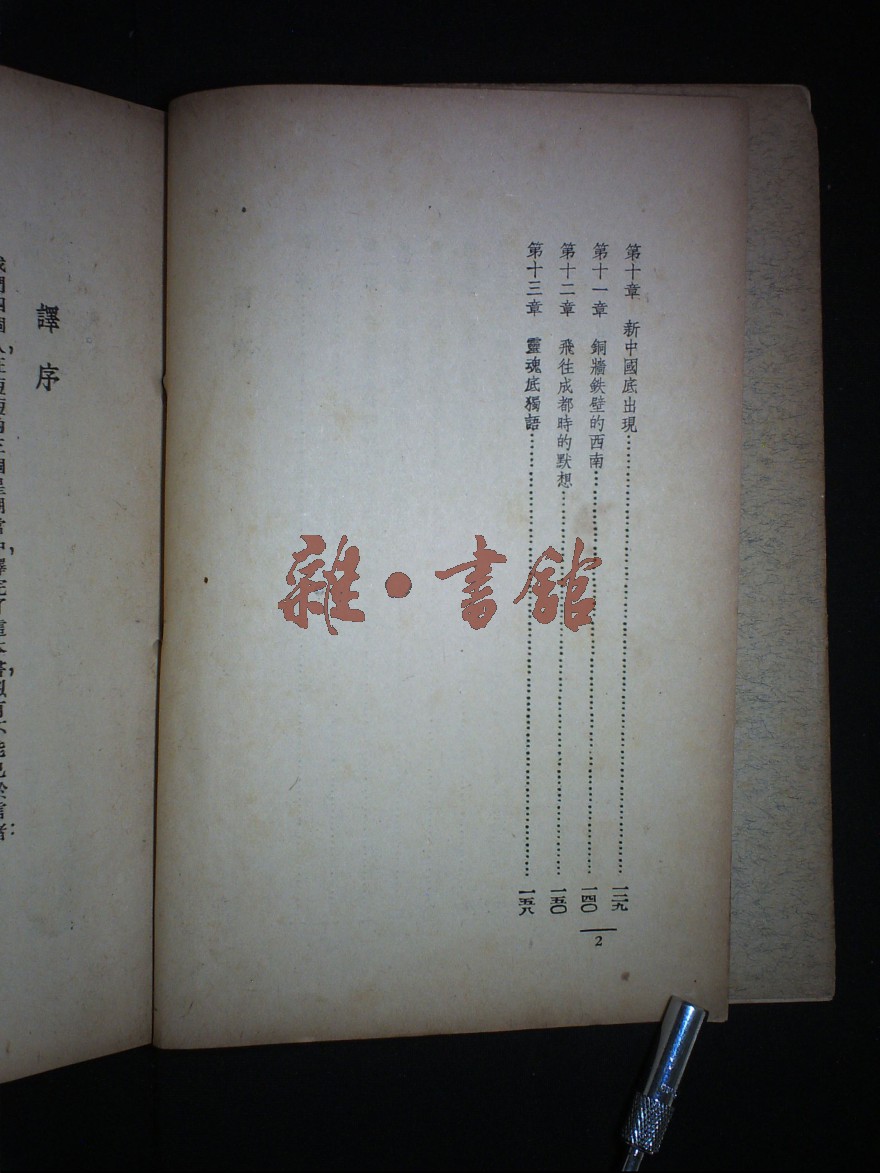 第十章　新中國底出現……一二九
第十一章　銅牆鉄壁的西南……一四〇
第十二章　飛往成都時的默想……一五〇
第十三章　靈魂底獨語……一五八
2
雜・書館
譯序